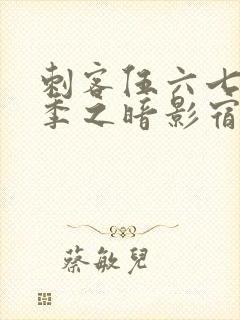 刺客伍六七
季之暗影宿
蔡敏兒